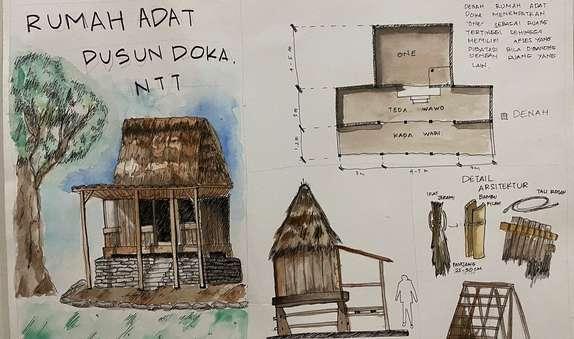 RUMAH ADAT
DUSUN DOKA,
NTT
DENAH RUMAH ADAT
DOKA MENEMPATKAN
"ONE" SEBAGAI RUANG
TERTINGGI SEHINGGA
MEMILIKI AKSES YANG
DIBATASI BILA DIBANDING
DENGAN RUANG YANG
LAIN
ONE
TEDA WAWO
KADA WARI
DENAH
DETAIL
ARSITEKTUR
IKAT
JERAMI
BAMBU
TALI ROTAN
PANJANG